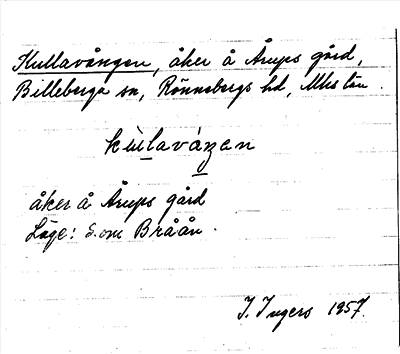 Kullavången, åker å Årups gård,
Billeberga sn, Rönnebergs hd, Mhs län.
kùlaváŋen
åker å Årups gård
Läge: S. om Bråån.
I. Ingers 1957.